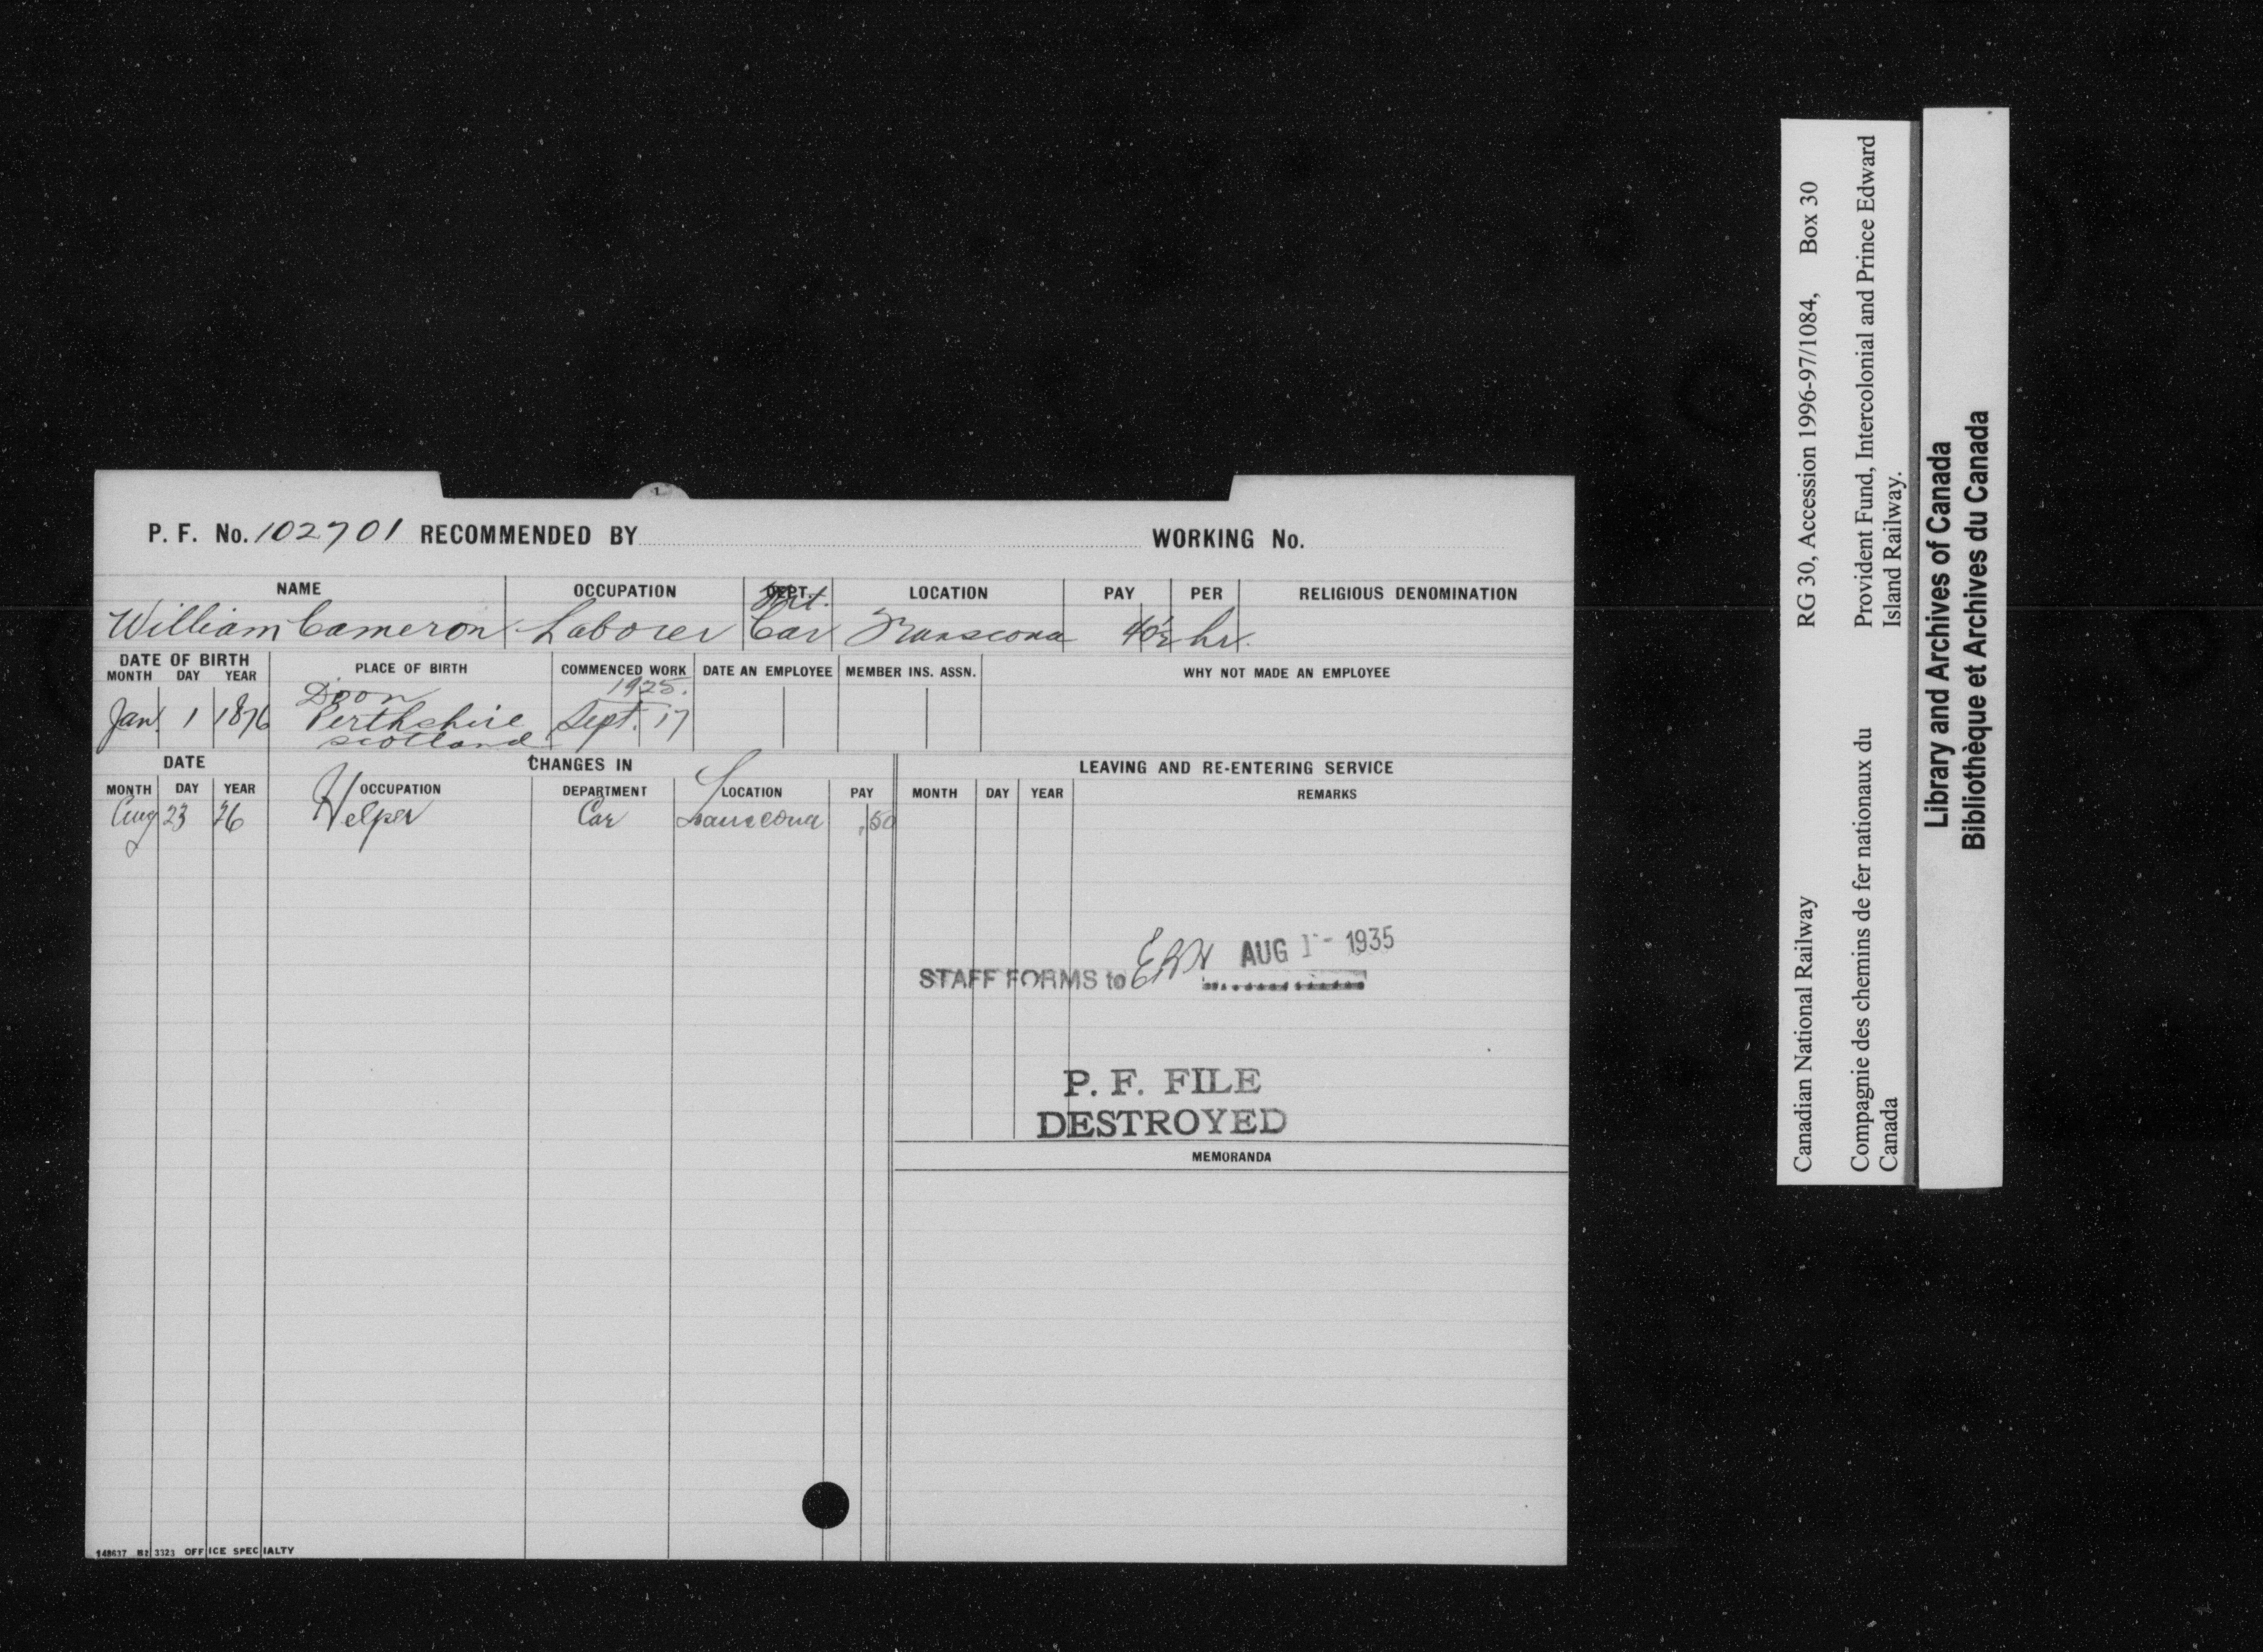 P. F. No. 102701 RECOMMENDED BY WORKING No.
NAME OCCUPATION DEPT. LOCATION PAY PER RELIGIOUS DENOMINATION
William Cameron Laborer Car Transcona 40½ hr.
DATE OF BIRTH PLACE OF BIRTH COMMENCED WORK DATE AN EMPLOYEE MEMBER INS. ASSN. WHY NOT MADE AN EMPLOYEE
MONTH DAY YEAR
Doon 1925.
Jan. 1 1876 Perthshire Sept. 17
Scotland
DATE CHANGES IN LEAVING AND RE-ENTERING SERVICE
MONTH DAY YEAR OCCUPATION DEPARTMENT LOCATION PAY MONTH DAY YEAR REMARKS
Aug 23 26 Helper Car Transcona .50
STAFF FORMS to AUG 1 - 1935
P. F. FILE
DESTROYED
MEMORANDA
148637 B2 3323 OFFICE SPECIALTY
Canadian National Railway RG 30, Accession 1996-97/1084, Box 30
Compagnie des chemins de fer nationaux du Provident Fund, Intercolonial and Prince Edward
Canada Island Railway.
Library and Archives of Canada
Bibliothèque et Archives du Canada